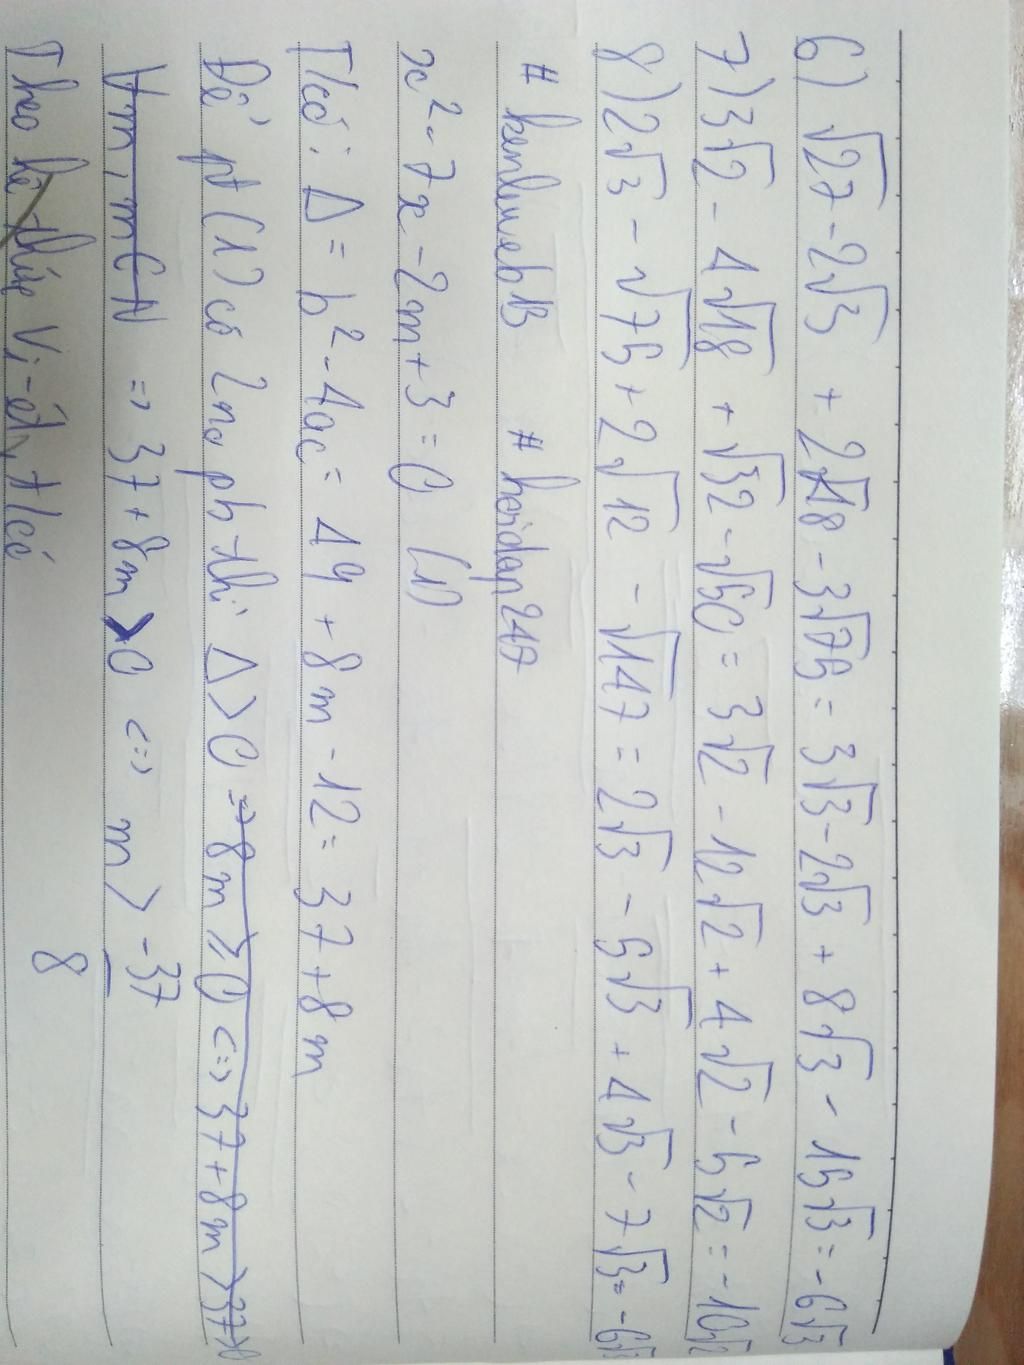 6) √27 - 2√3 + 2√48 - 3√75 = 3√3 - 2√3 + 8√3 - 15√3 = -6√3
7) 3√2 - 4√18 + √32 - √50 = 3√2 - 12√2 + 4√2 - 5√2 = -10√2
8) 2√3 - √75 + 2√12 - √147 = 2√3 - 5√3 + 4√3 - 7√3 = -6√3
# kenlweb13 # hoidap247
x² - 7x - 2m + 3 = 0 (1)
T/có: Δ = b² - 4ac = 49 + 8m - 12 = 37 + 8m
Để pt (1) có 2 no pb thì Δ > 0 => 8m ≥ 0 <=> 37 + 8m > 37 > 0
∀m, m ∈ N => 37 + 8m > 0 <=> m > -37/8
Theo hệ thức Vi-ét, t/có